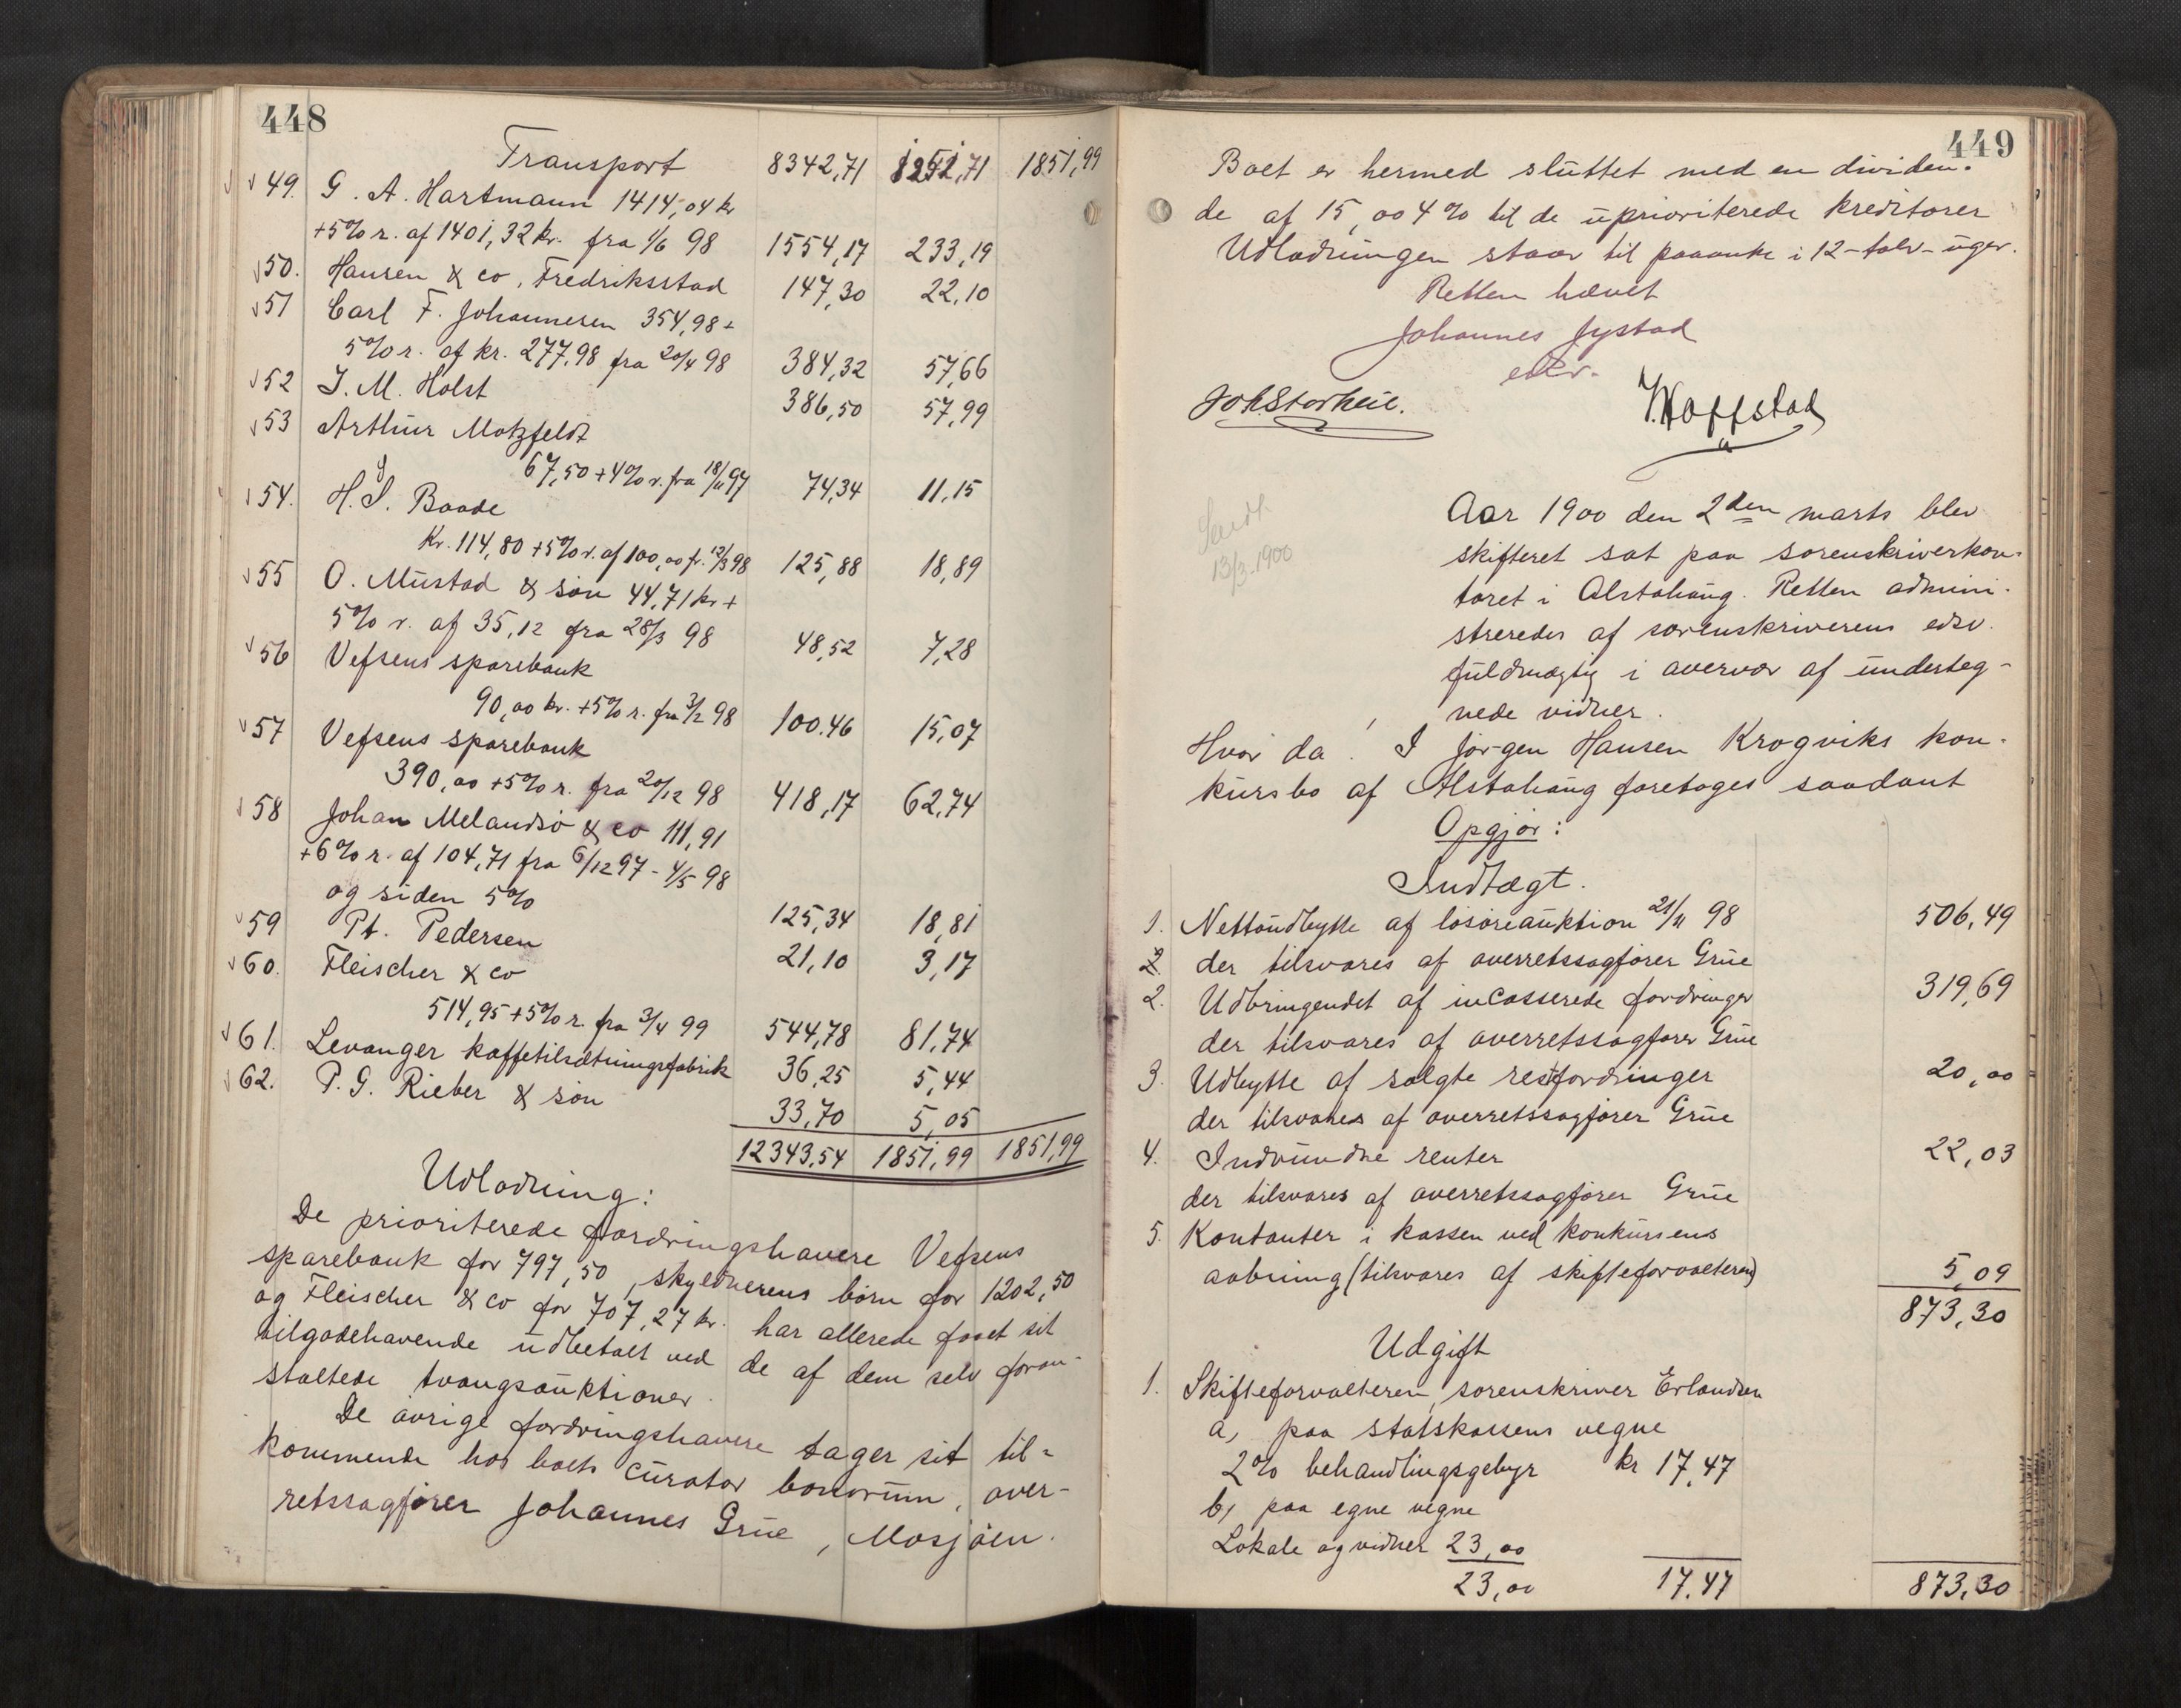 448
Transport 8342,71 1251,71 1851,99
49. G. A. Hartmann 1414,04 kr
+5% r. af 1401,32 kr. fra 1/6 98 1554,17 233,19
50. Hansen & co, Fredriksstad 147,30 22,10
51 Carl F. Johannesen 354,98 +
5% r. af kr. 277,98 fra 20/4 98 384,32 57,66
52 J. M. Holst 386,50 57,99
53 Arthur Motzfeldt
67,50 + 4% r. fra 18/11 97 74,34 11,15
54. H. S. Baade
Kr. 114,80 + 5% r. af 100,00 fr. 12/3 98 125,88 18,89
55 O. Mustad & søn 44,71 kr +
5% r. af 35,12 fra 28/3 98 48,52 7,28
56 Vefsens sparebank
90,00 kr. +5% r. fra 3/12 98 100.46 15,07
57 Vefsens sparebank
390,00 +5% r. fra 20/12 98 418,17 62,74
58 Johan Melandsø & co 111,91
+6% r. af 104,71 fra 6/12 97 - 4/5 98
og siden 5% 125,34 18,81
59 Pt. Pedersen 21,10 3,17
60. Fleischer & co
514,95 +5% r. fra 3/4 99 544,78 81,74
61. Levanger kaffetilsætningsfabrik 36,25 5,44
62. P. G. Rieber & søn 33,70 5,05
12343,54 1851,99 1851,99
Udlodning:
De prioriterede fordringshavere Vefsens
sparebank for 797,50, skyldnerens børn for 1202,50
og Fleischer & co for 707,27 kr. har allerede faaet sit
tilgodehavende udbetalt ved de af dem selv foran-
staltede tvangsauktioner.
De øvrige fordringshavere tager sit til-
kommende hos boets curator bonorum, over-
retssagfører Johannes Grüe, Mosjøen.
449
Boet er hermed sluttet med en dividen-
de af 15,004 % til de uprioriterede kreditorer
Udlodningen staar til paaanke i 12-tolv-uger.
Retten hævet
Johannes Jystad
edsv.
Joh Storheie. Haffstad
Sendt
13/3-1900
Aar 1900 den 2den marts blev
skifteret sat paa sorenskriverkon-
toret i Alstahaug. Retten admini-
streredes af sorenskriverens edsv.
fuldmægtig i overvær af underteg-
nede vidner.
Hvor da: I Jørgen Hansen Krogviks kon-
kursbo af Alstahaug foretages saadant
Opgjør:
Indtægt.
1. Nettoudbytte af løsøreauktion 21/11 98 506,49
2 der tilsvares af overretssagfører Grüe
2. Udbringendet af incasserede fordringer 319,69
der tilsvares af overretssagfører Grüe
3. Udbytte af solgte restfordringer 20,00
der tilsvares af overretssagfører Grüe
4. Indvundne renter 22,03
der tilsvares af overretssagfører Grüe
5. Kontanter i kassen ved konkursens
aabning (tilsvares af skifteforvalteren) 5,09
873,30
Udgift
1. Skifteforvalteren, sorenskriver Erlandsen
a, paa statskassens vegne
2% behandlingsgebyr kr 17,47
b, paa egne vegne
Lokale og vidner 23,00
23,00 17,47 873,30